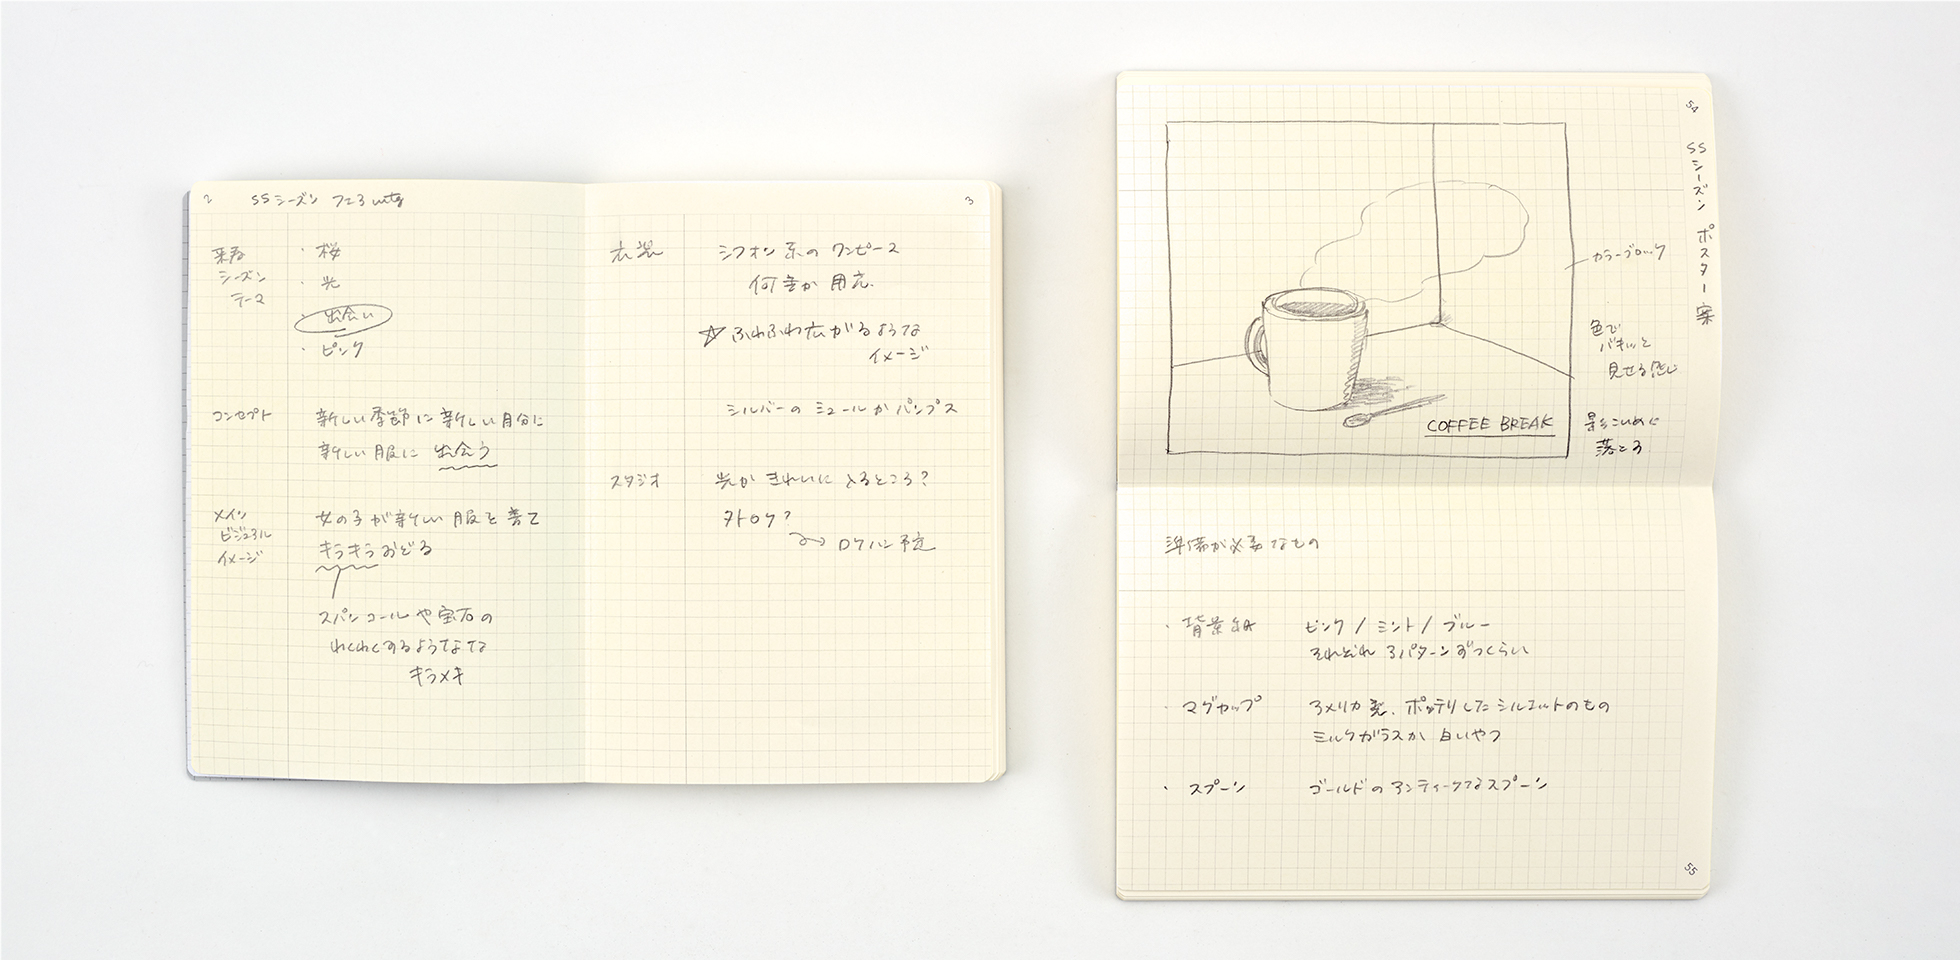 2
SSシーズン フェス mtg
来春
シーズン
テーマ
・桜
・光
・出会い
・ピンク
コンセプト
新しい季節に新しい自分に
新しい服に 出会う
メイン
ビジュアル
イメージ
女の子が新しい服を着て
キラキラおどる
スパンコールや宝石の
わくわくするようなな
キラメキ
3
衣装
シフォン系のワンピース
何色か用意
☆ふわふわ広がるような
イメージ
シルバーのミュールかパンプス
スタジオ
光がきれいにとるところ?
外ロケ?
ロケハン予定
54
SSシーズン ポスター案
カラーブロック
色で
バキッと
見せる感じ
影をこいめに
落とす
COFFEE BREAK
準備が必要なもの
・背景紙
ピンク / ミント / ブルー
それぞれ3パターンずつくらい
・マグカップ
アメリカ製、ポッテリしたシルエットのもの
ミルクガラスか 白いやつ
・スプーン
ゴールドのアンティークなスプーン
55